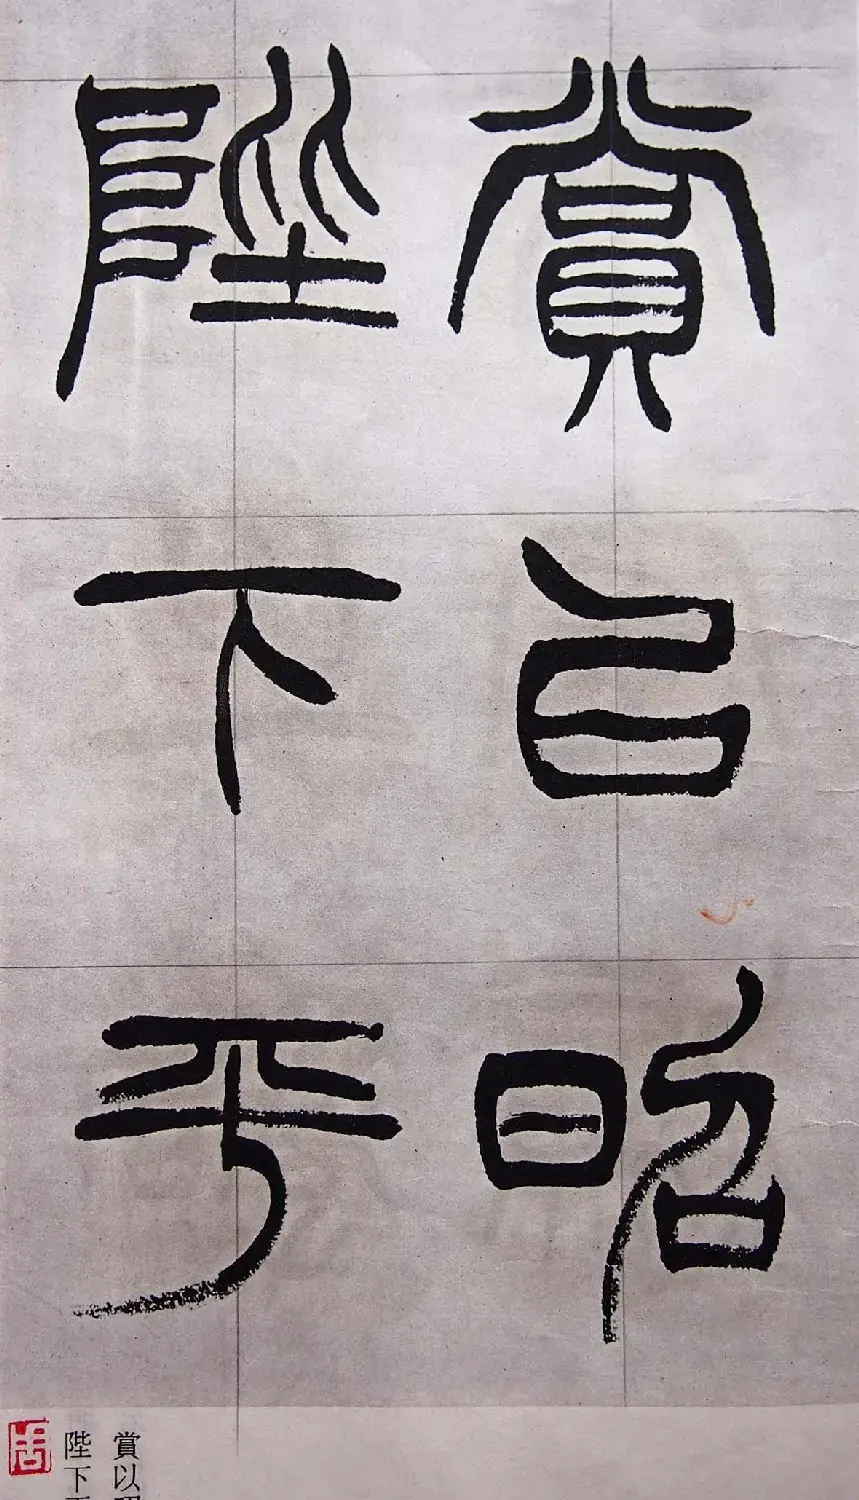 賞以昭
陛下平
賞以
陛下